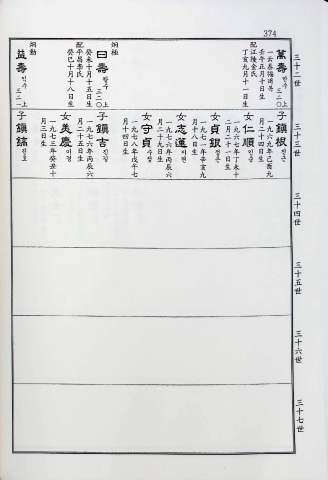 374
三十二世
萬壽 만수 三二〇上
一云泰福 태복
壬午正月十日生
配江陵金氏
丁亥九月十一日生
炯極
曰壽 왈수 三二〇上
癸未十月十五日生
配平昌李氏
癸巳十月十八日生
炯勳
益壽 익수 三二一上
三十三世
子 鎭根 진근
一九六九年己酉九
月二十四日生
女 仁順 인순
一九六七年丁未十
一月二十一日生
女 貞銀 정은
一九七一年辛亥九
月十八日生
女 志蓮 지련
一九七六年丙辰六
月二十九日生
女 守貞 수정
一九七八年戊午七
月十四日生
子 鎭吉 진길
一九七六年丙辰六
月二十五日生
女 美慶 미경
一九七三年癸丑十
月三日生
子 鎭鎬 진호
三十四世
三十五世
三十六世
三十七世